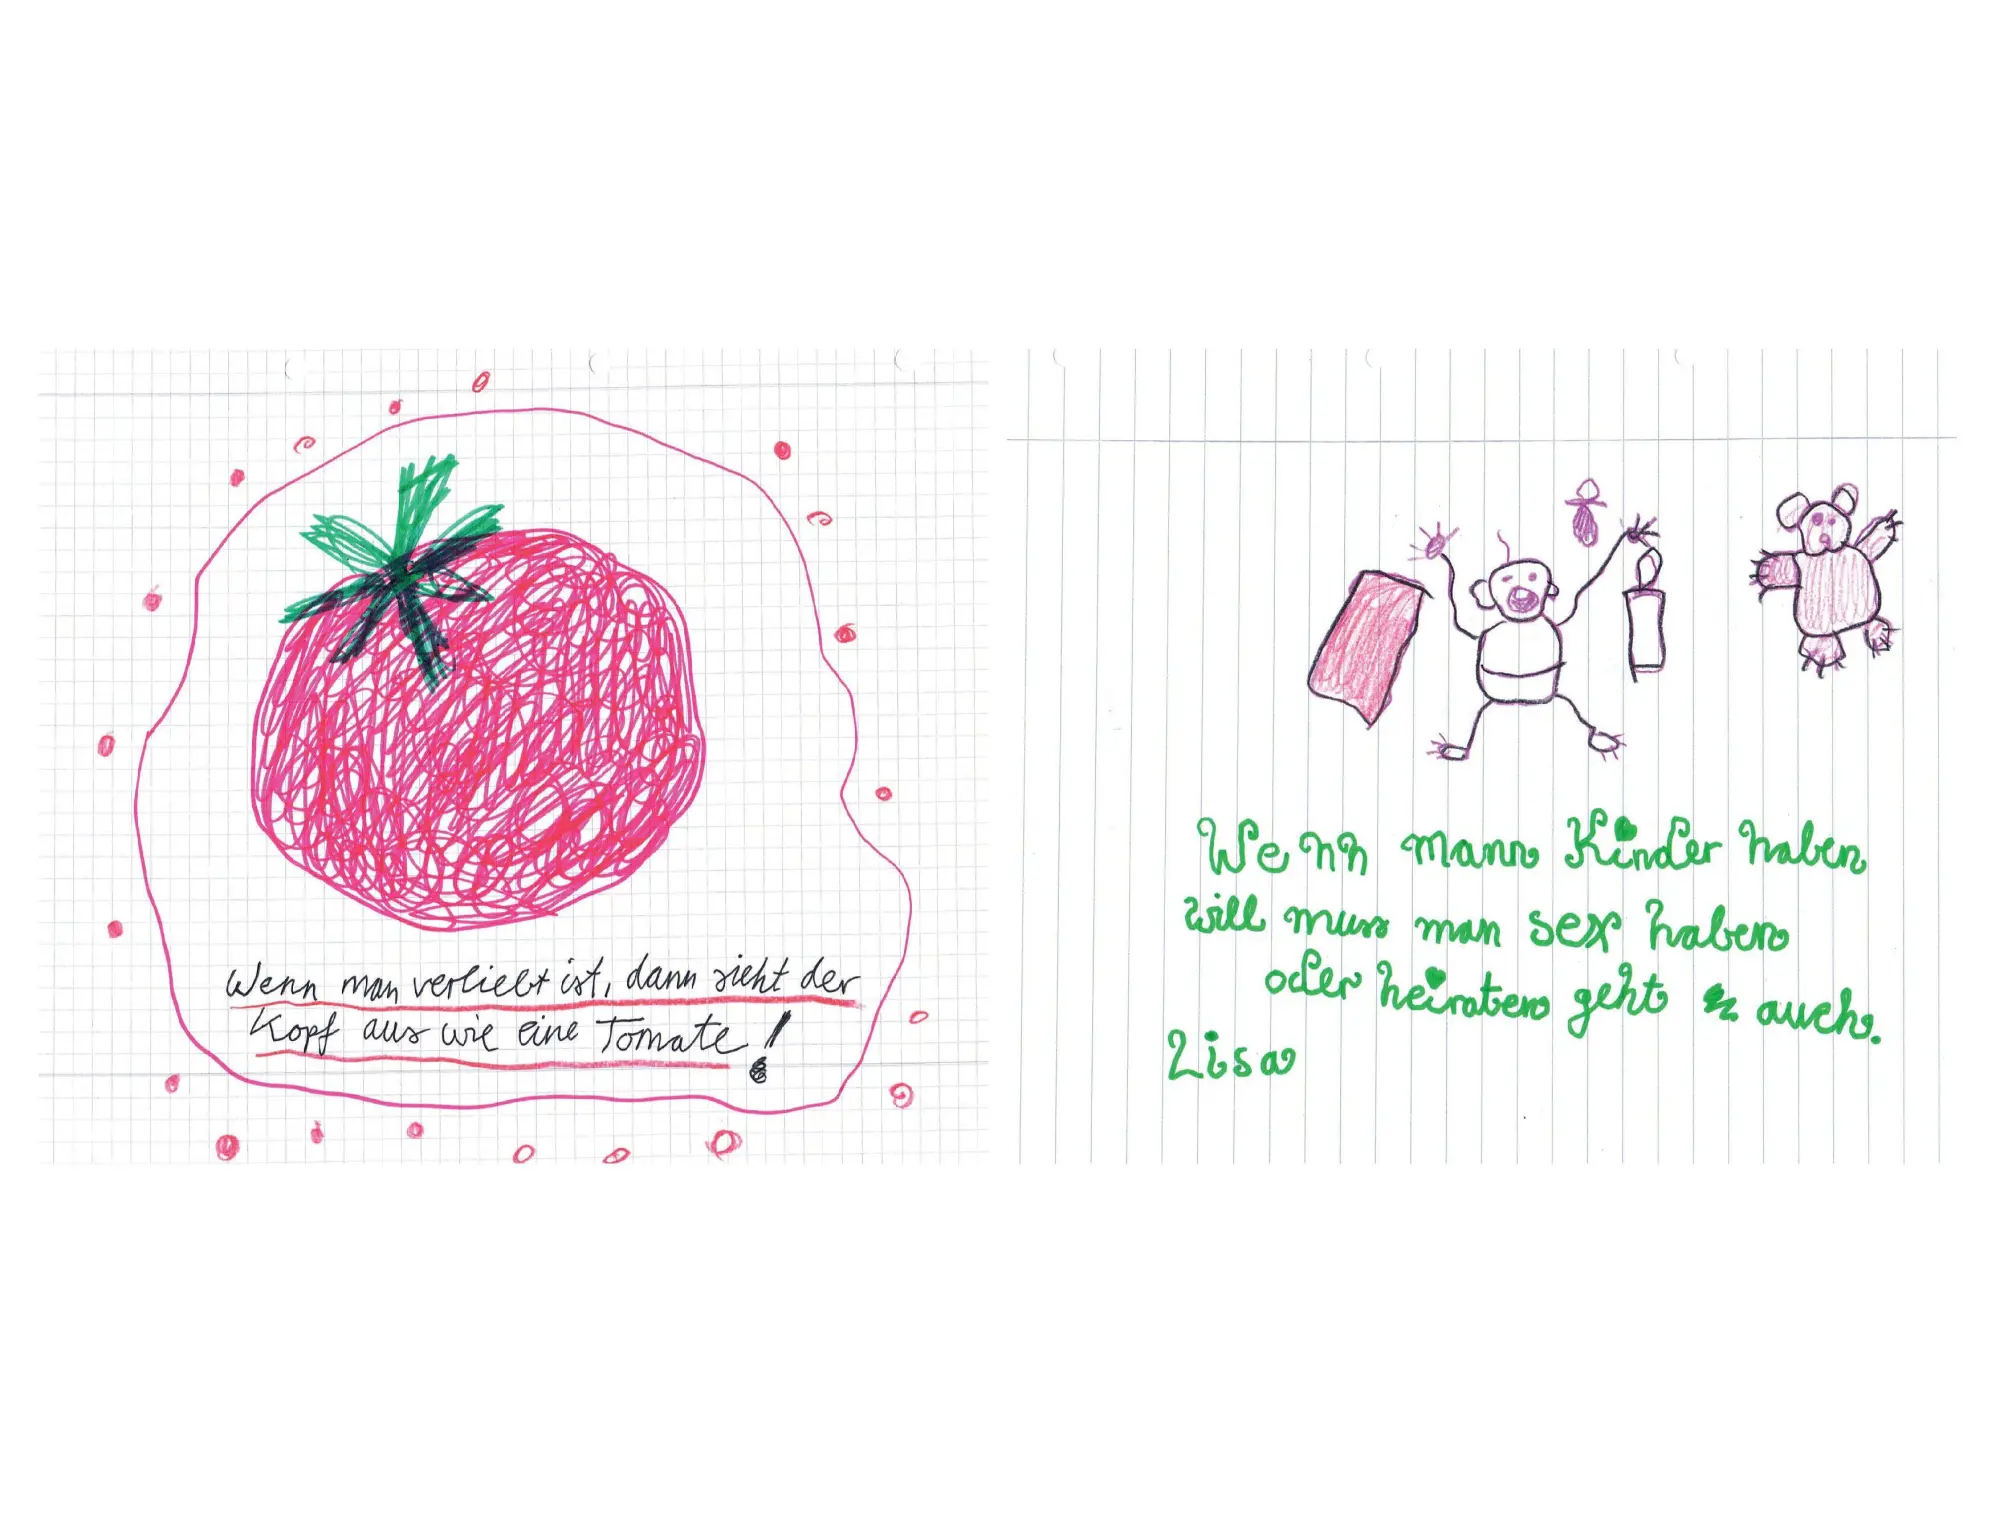 Wenn man verliebt ist, dann sieht der
Kopf aus wie eine Tomate!
Wenn mann Kinder haben
will muss man sex haben
oder heiraten geht auch.
Lisa